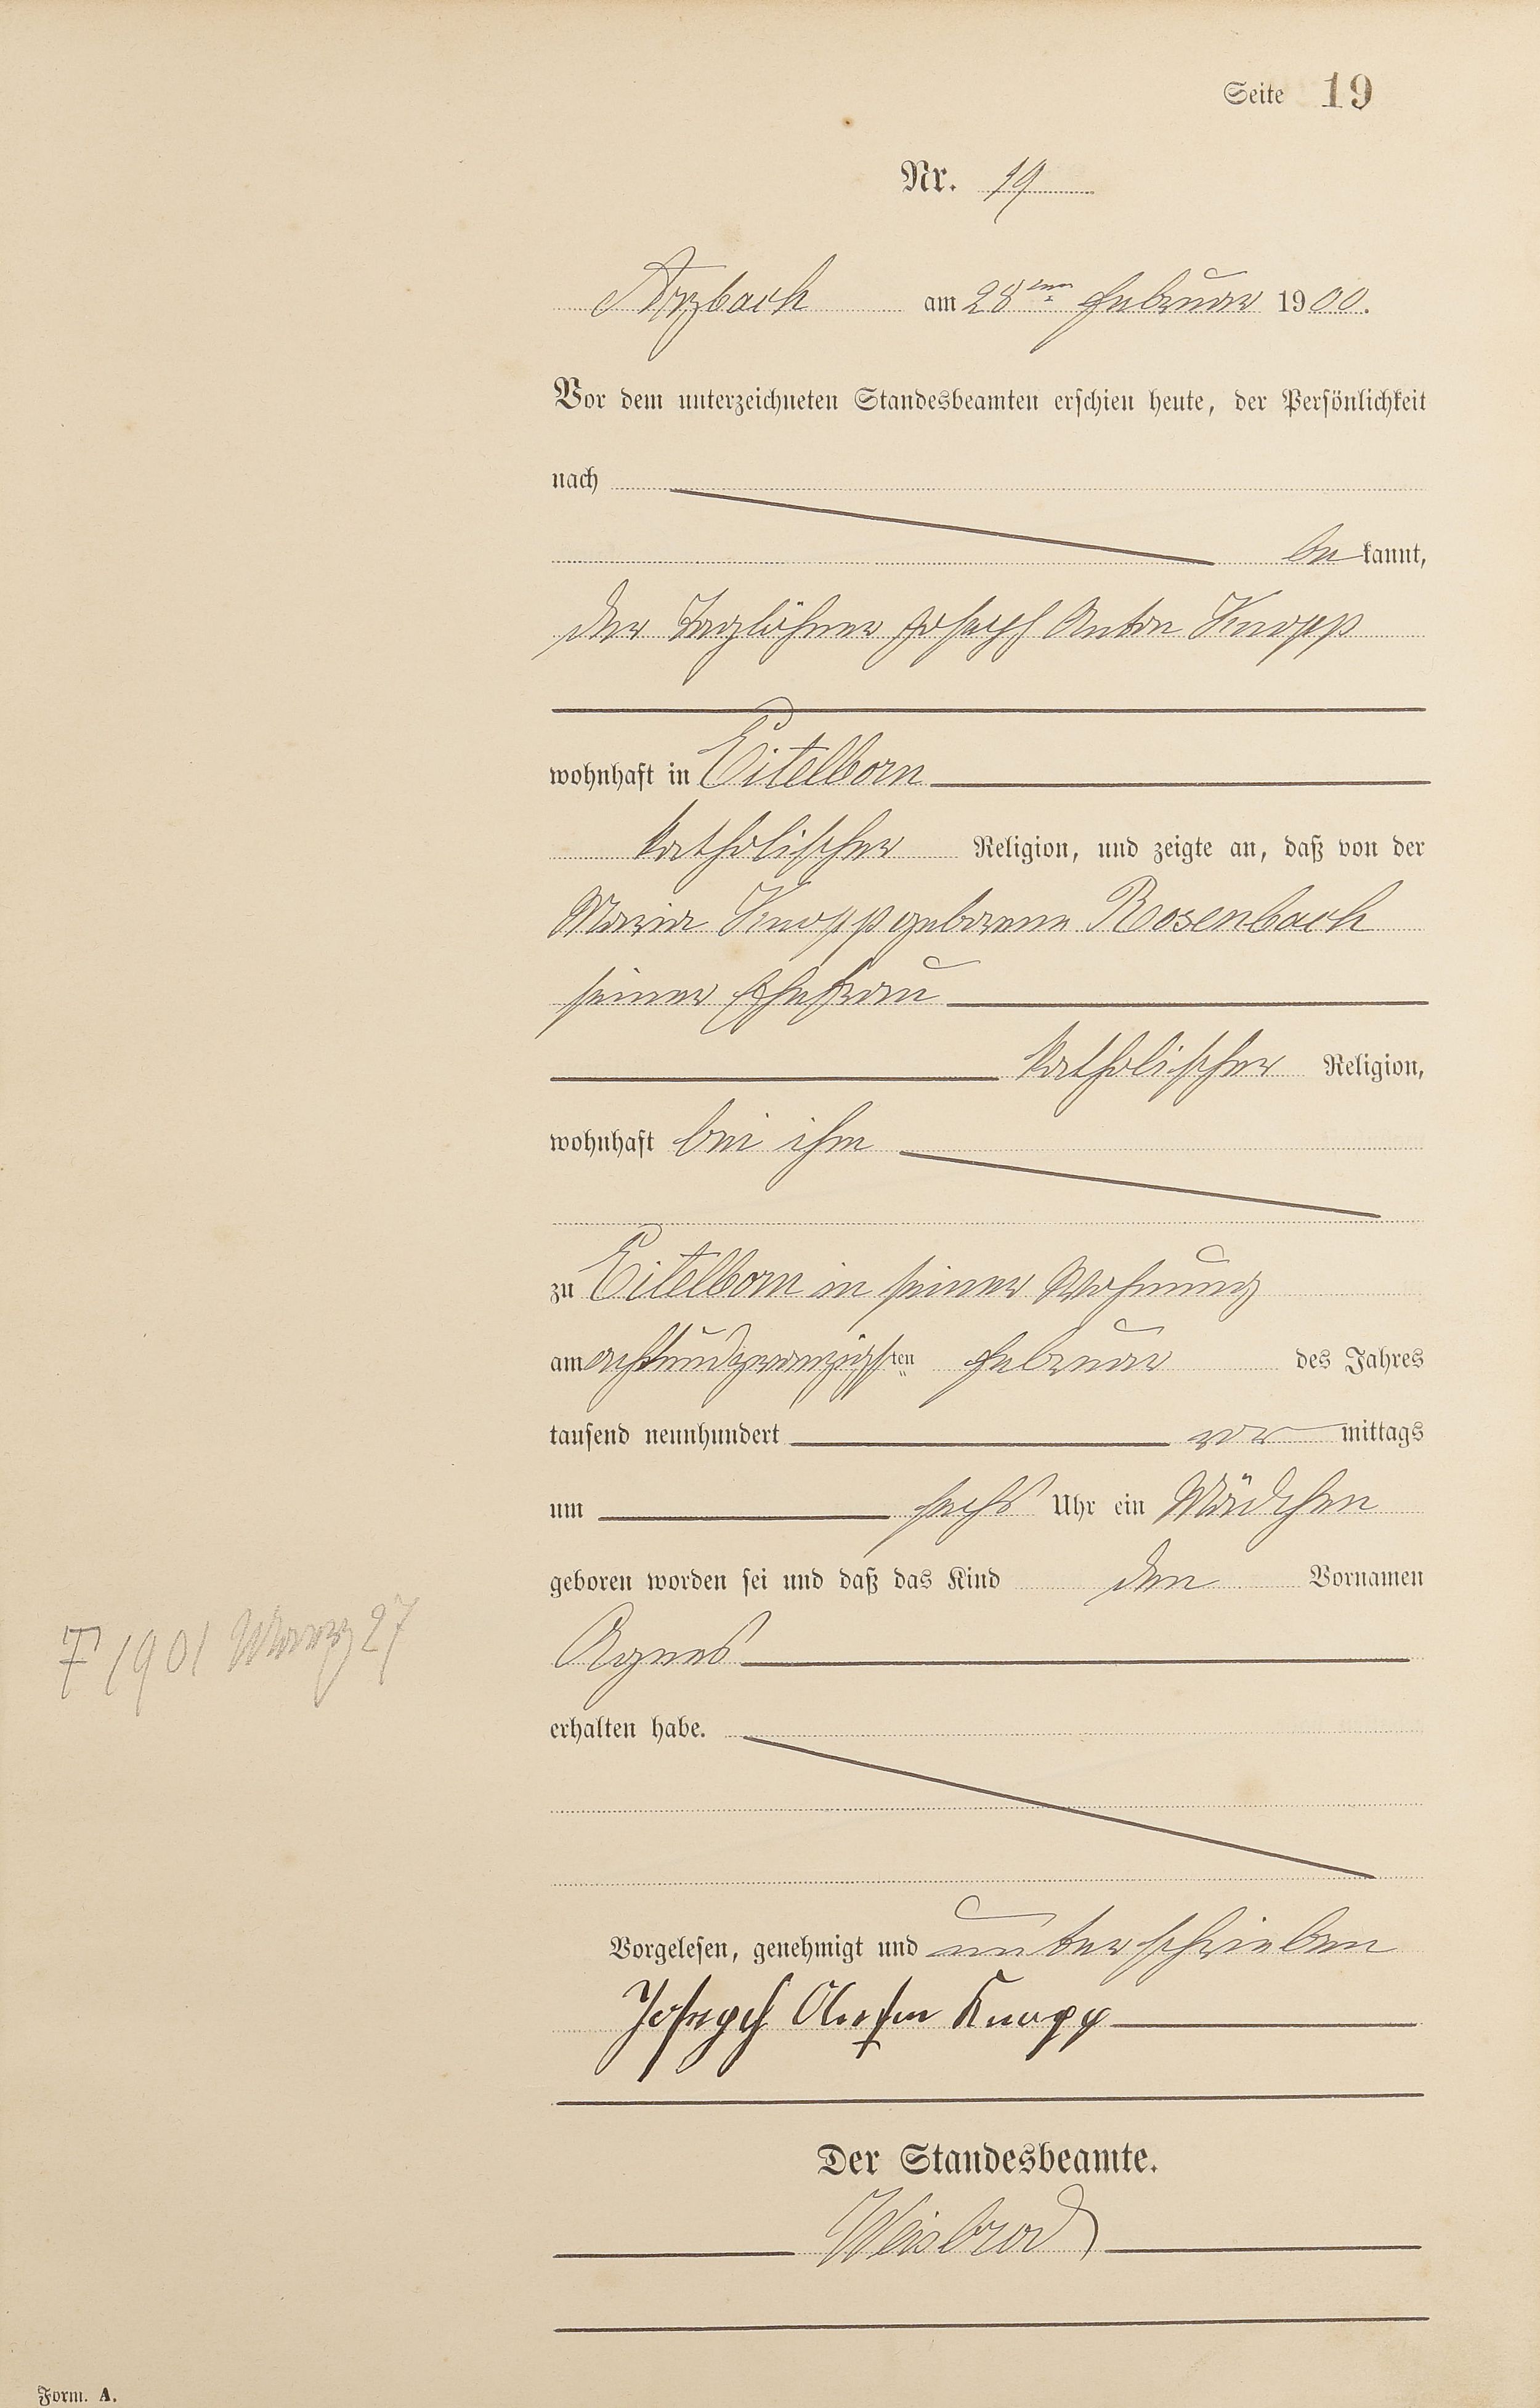 Seite 19
Nr. 19
Arzbach am 28ten Februar 1900.
Vor dem unterzeichneten Standesbeamten erschien heute, der Persönlichkeit
nach
bekannt,
der Taglöhner Joseph Anton Knopp
wohnhaft in Eitelborn
katholischer Religion, und zeigte an, daß von der
Maria Knopp geborene Rosenbach
seiner Ehefrau
katholischer Religion,
wohnhaft bei ihm
zu Eitelborn in seiner Wohnung
am achtundzwanzigsten Februar des Jahres
tausend neunhundert vormittags
um sechs Uhr ein Mädchen
geboren worden sei und daß das Kind den Vornamen
† 1901 März 27
Agnes
erhalten habe.
Vorgelesen, genehmigt und unterschrieben
Joseph Anton Knopp
Der Standesbeamte.
Weisbrod
Form. A.